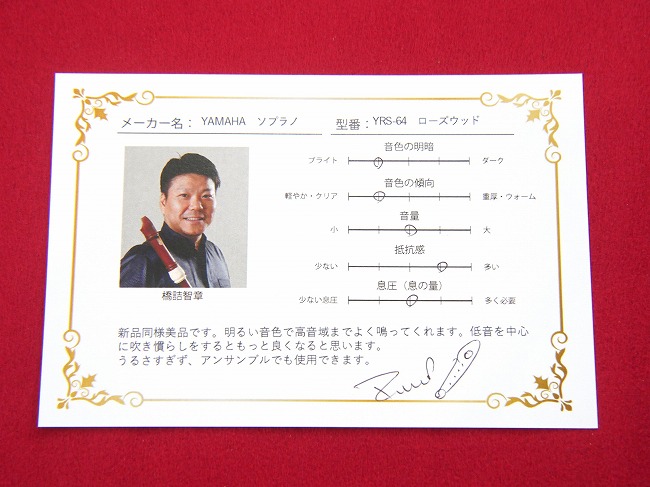 メーカー名： YAMAHA ソプラノ 型番：YRS-64 ローズウッド
音色の明暗
ブライト ダーク
音色の傾向
軽やか・クリア 重厚・ウォーム
音量
小 大
抵抗感
少ない 多い
息圧（息の量）
少ない息圧 多く必要
橋詰智章
新品同様美品です。明るい音色で高音域までよく鳴ってくれます。低音を中心
に吹き慣らしをするともっと良くなると思います。
うるさすぎず、アンサンブルでも使用できます。